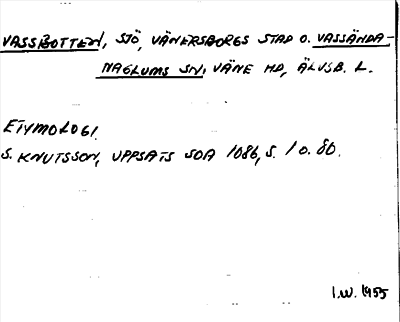 VASSBOTTEN, SJÖ, VÄNERSBORGS STAD O. VASSÄNDA-
NAGLUMS SN, VÄNE HD, ÄLVSB. L.
ETYMOLOGI.
S. KNUTSSON, UPPSATS SOA 1086, S. 1 O. 80.
I.W. 1955